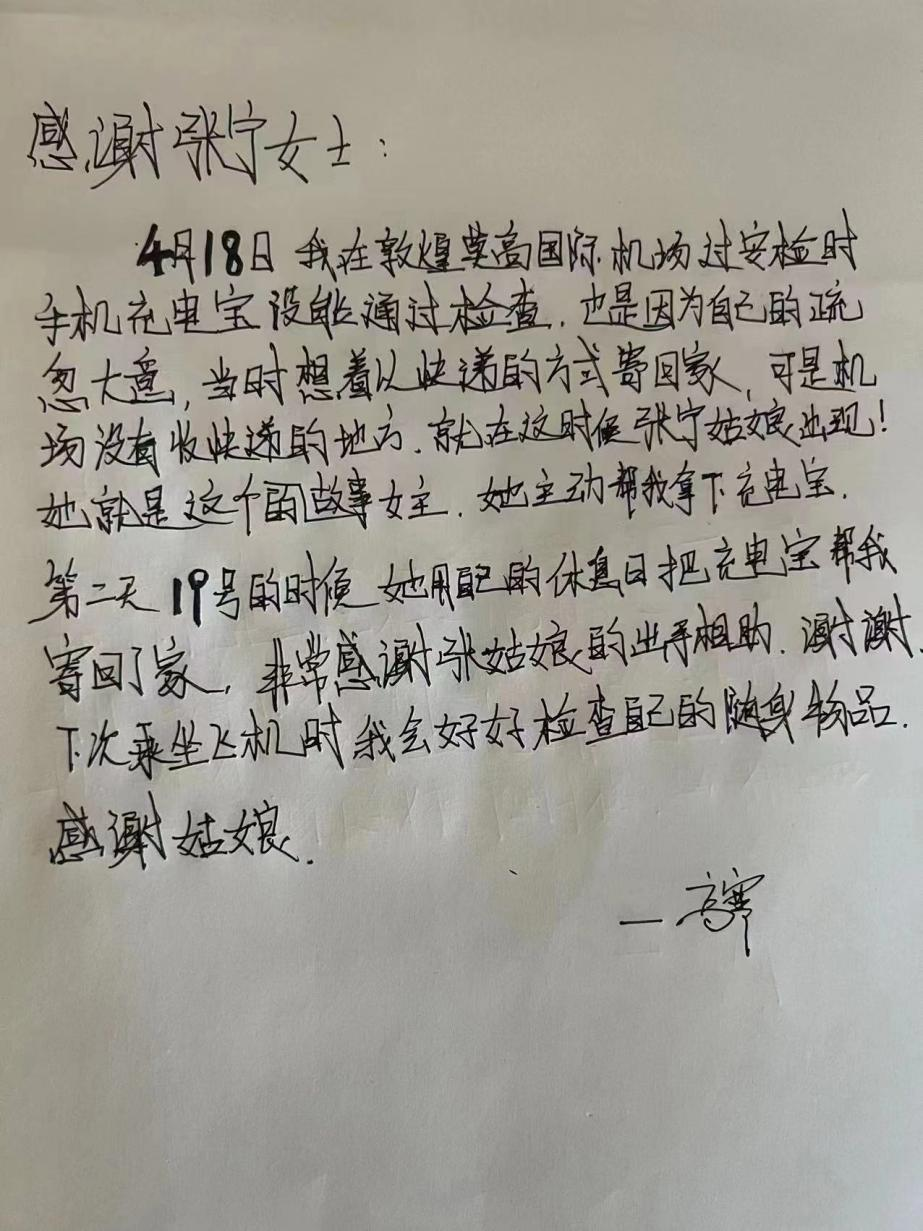 感谢张宁女士：
4月18日 我在敦煌莫高国际机场过安检时
手机充电宝没能通过检查. 也是因为自己的疏
忽大意, 当时想着以快递的方式寄回家, 可是机
场没有收快递的地方. 就在这时候张宁姑娘出现!
她就是这个的故事女主. 她主动帮我拿下充电宝.
第二天 19号的时候 她用自己的休息日把充电宝帮我
寄回了家, 非常感谢张姑娘的出手相助. 谢谢.
下次乘坐飞机时我会好好检查自己的随身物品.
感谢姑娘.